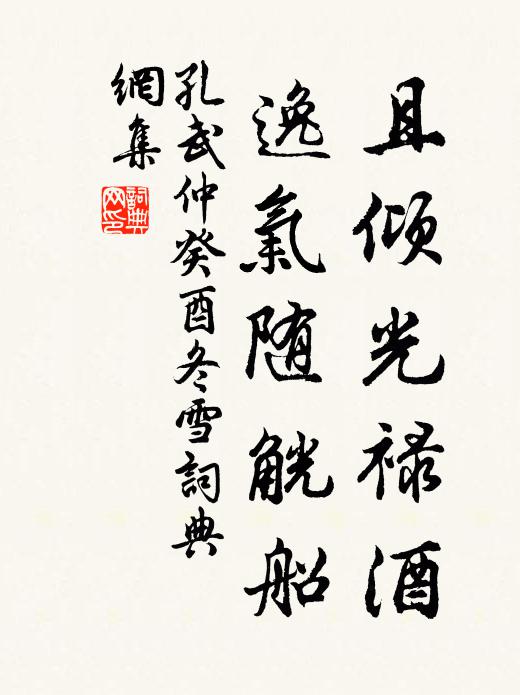 且倾光禄酒
逸氣随觥船
孔武仲癸酉冬雪詞典
網集
詞典網印